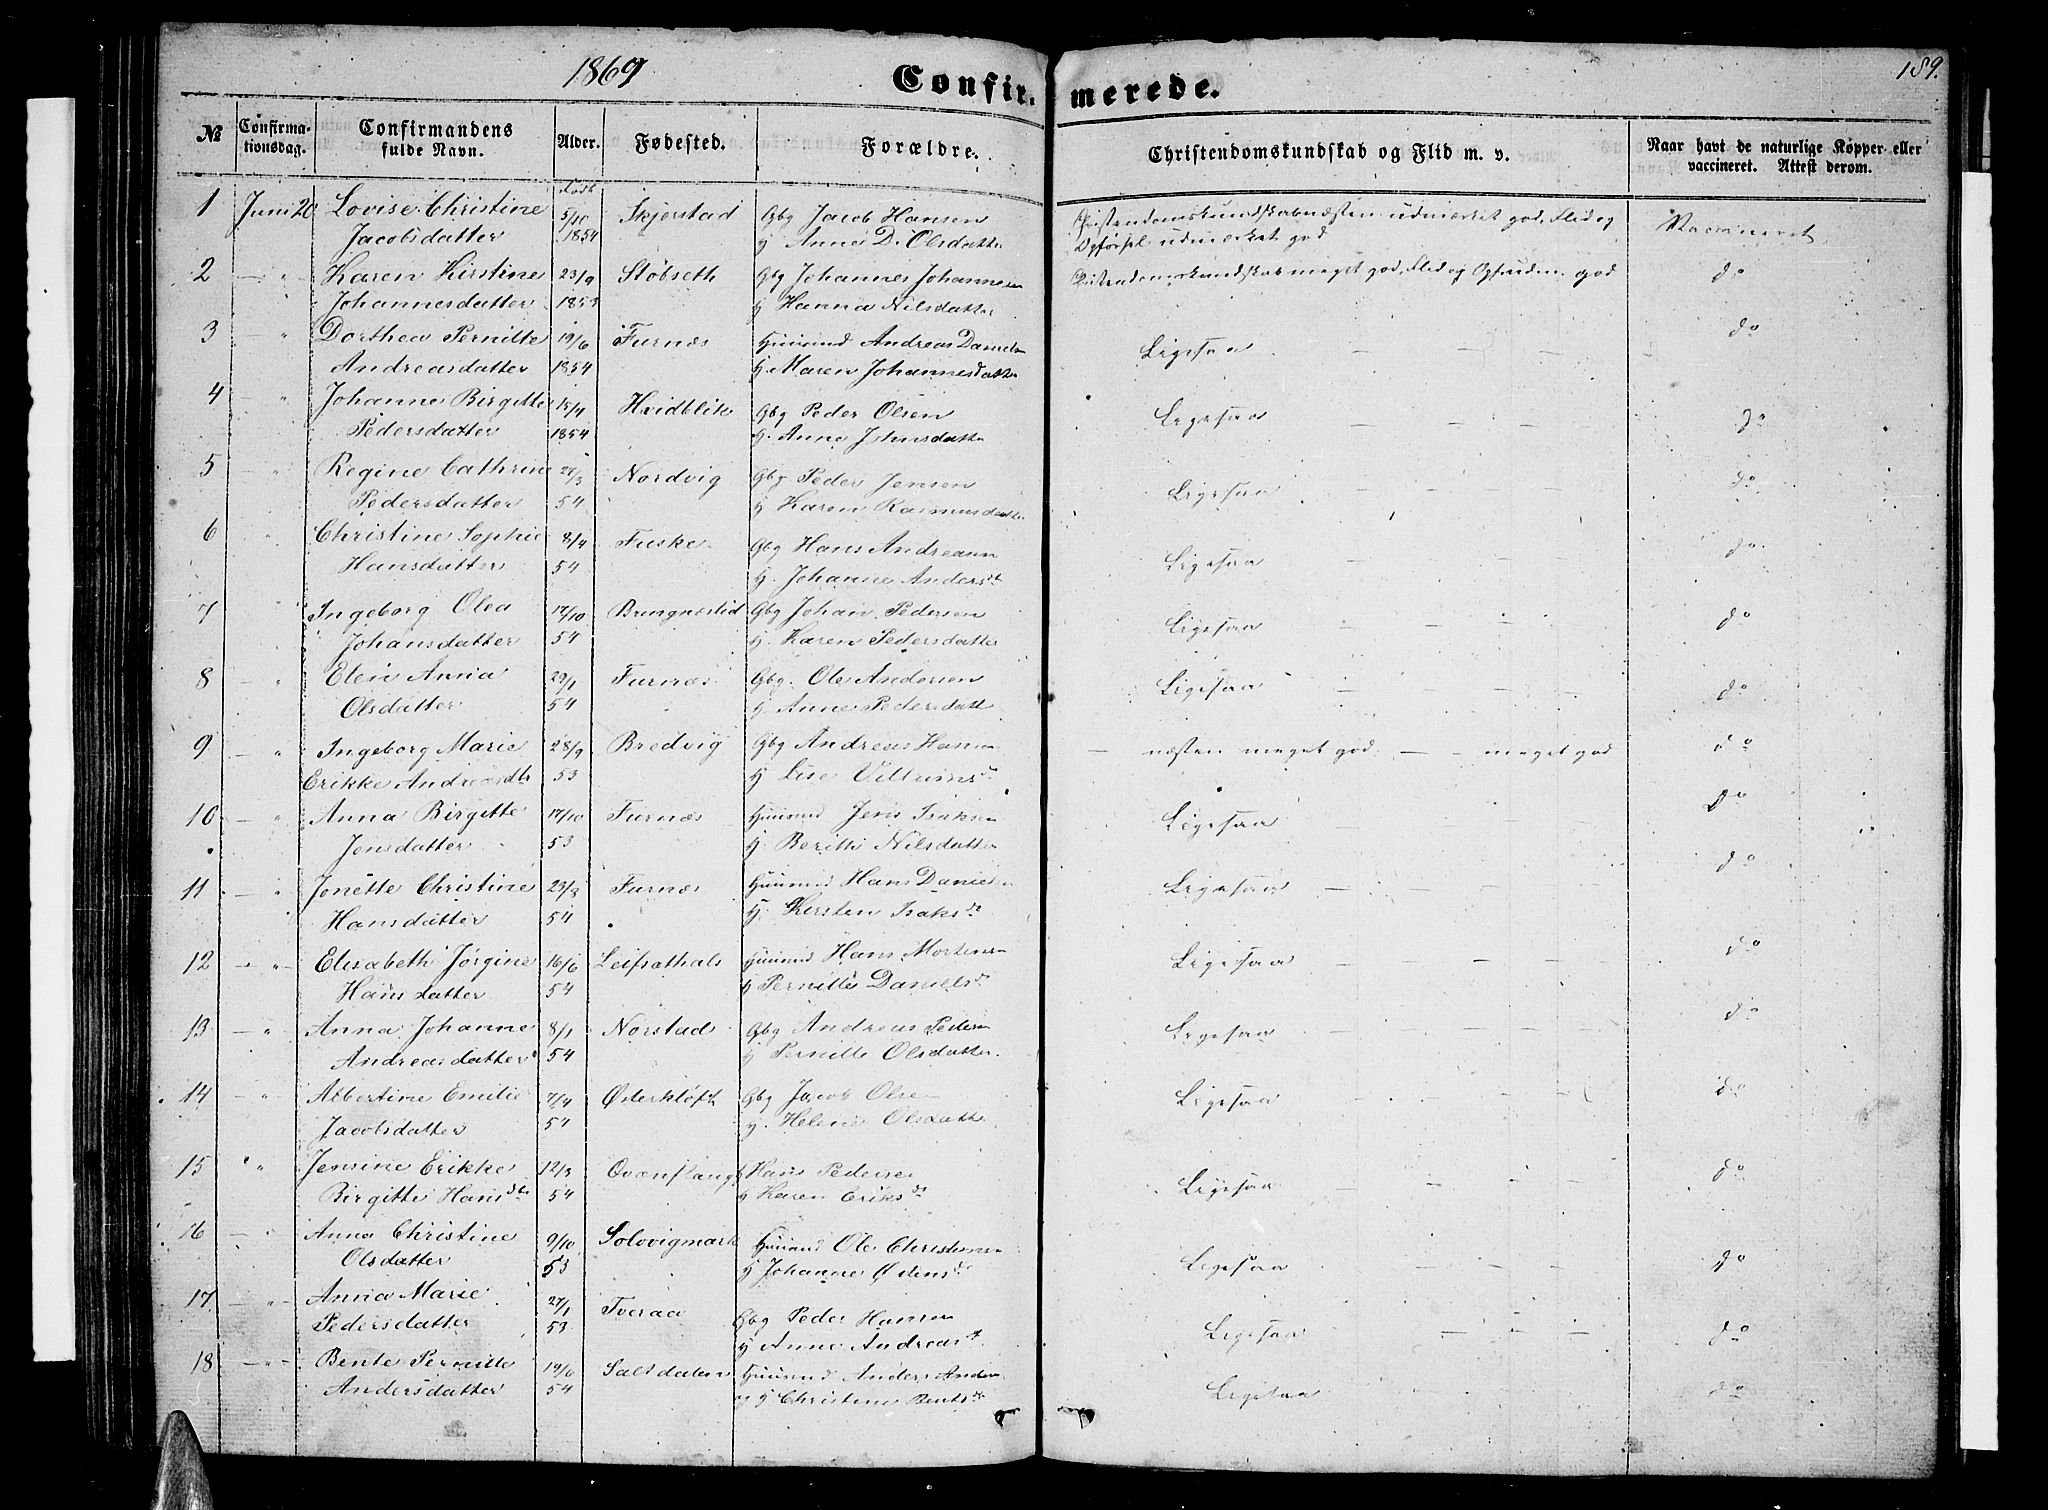 1869
Confirmerede.
189.
№ Confirmationsdag. Confirmandens fulde Navn. Alder. Fødested. Forældre. Christendomskundskab og Flid m. v. Naar havt de naturlige Kopper eller vaccineret. Attest derom.
født
1 Juni 20 Lovise Christine 5/10 Skjerstad Gbg Jacob Hansen Christendomskundskab næsten udmærket god, Flid og Vaccineret
Jacobsdatter 1854 H. Anne D. Olsdatter Opførsel udmærket god
2 — " Karen Kirstine 23/9 Støbseth Gbg Johannes Johannesen Christendomskundskab meget god, Flid og god do
Johannesdatter 1853 H Hanna Nilsdatter
3 — " Dorthea Pernille 19/6 Furnæs Huusmd Andreas Daniels Ligesaa — — — — do
Andreasdatter 1854 H. Maren Johannesdatter
4 — " Johanne Birgitte 15/4 Hvidblik Gbg Peder Olsen Ligesaa — — — — do
Pedersdatter 1854 H. Anne Johnsdatter
5 — " Regine Cathrine Nordvig Gbg Peder Jensen Ligesaa — — — — do
Pedersdatter 54 H Karen Rasmusdatter
6 " Christine Sophie 8/4 Fuske Gbg Hans Andreasen Ligesaa — — — do
Hansdatter 54 H. Johanne Andersdt
7 " Ingeborg Olea 17/10 Gbg Johan Pedersen Ligesaa — — — do
Johansdatter 54 H. Karen Pedersdatter
8 — " Elen Anna 29/1 Furnæs Gbg. Ole Andersen Ligesaa — — — — do
Olsdatter 54 H Anne Pedersdatt
9 — " Ingeborg Marie 28/9 Bredvig Gbg Andreas Hansen — næsten meget god — — meget god do
Erikke Andreasdtr 53 H Lise
10 — " Anna Birgitte 17/10 Furnæs Huusmd Jens Isaksen Ligesaa — — — — do
Jensdatter 53 H Berith Nilsdatter
11 — " Jonette Christine 23/3 Furnæs Huusmd Hans Danielsen Ligesaa — — — — do
Hansdatter 54 H. Kirsten Isaksdt
12 — " — Elisabeth Jørgine 16/6 Leifsethals Huusmd Hans Mortensen Ligesaa — — — — do
Hansdatter 54 H Pernille Danielsdt
13 — " Anna Johanne 8/1 Nørstad Gbg Andreas Pedersen Ligesaa — — — — do
Andreasdatter 54 H Pernille Olsdatter
14 — " — Albertine Emilie 7/4 Østerkløft Gbg Jacob Olsen Ligesaa — — — — do
Jacobsdatter 54 H. Helene Olsdatter
15 " " Jensine Erikke 12/3 Hans Pedersen Ligesaa — — — do
Birgitte Hansdtr 54 H Karen Eriksdt
16 — " Anna Christine 9/10 Solovigmark Huusmd Ole Christensen Ligesaa — — — — do
Olsdatter 53 H Johanne
17 — " — Anna Marie 27/1 Tveraa Gbg Peder Hansen Ligesaa — — — do
Pedersdatter 53 H Anne Andreasdt
18 — " — Bente Pernille 19/6 Saltdalen Huusmd Anders Andersen Ligesaa do
Andersdatter 54 og H Christine Bentsdt